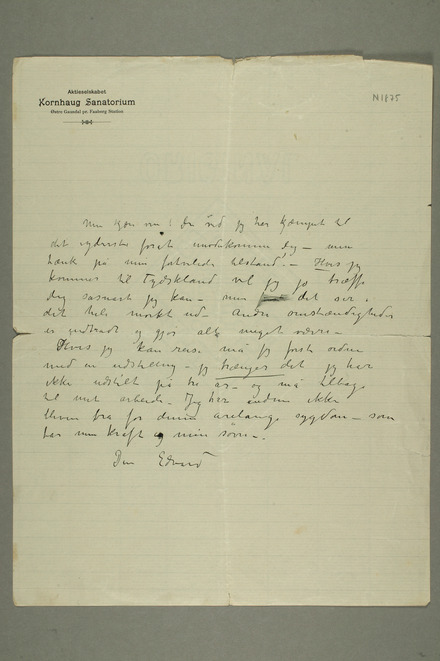 Aktieselskabet
Kornhaug Sanatorium
Østre Gausdal pr. Faaberg Station
N1875
Men kjære da ved jeg har kjæmpet til
det yderste for at imødekomme dig – men
tænk på min forfærdelige tilstand! – Hvis jeg
kommer til Tydskland vil jeg jo træffe
dig såsnart jeg kan – men det ser
det hele mørkt ud – Andre omstændigheder
er indtrådt og gjør alt meget værre –
Hvis jeg kan reise må jeg først ordne
med en udstilling – jeg trænger det jeg har
ikke udstillt på tre år – og må tilbage
til mit arbeide – Jeg har endnu ikke
fra for denne årelange sygdom – som
tar min kraft og min søvn –
Din Edvard